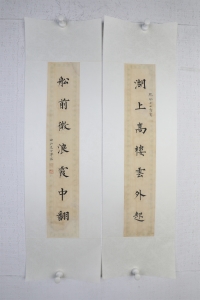 湖上高樓雲外起
船前微浪霞中翻